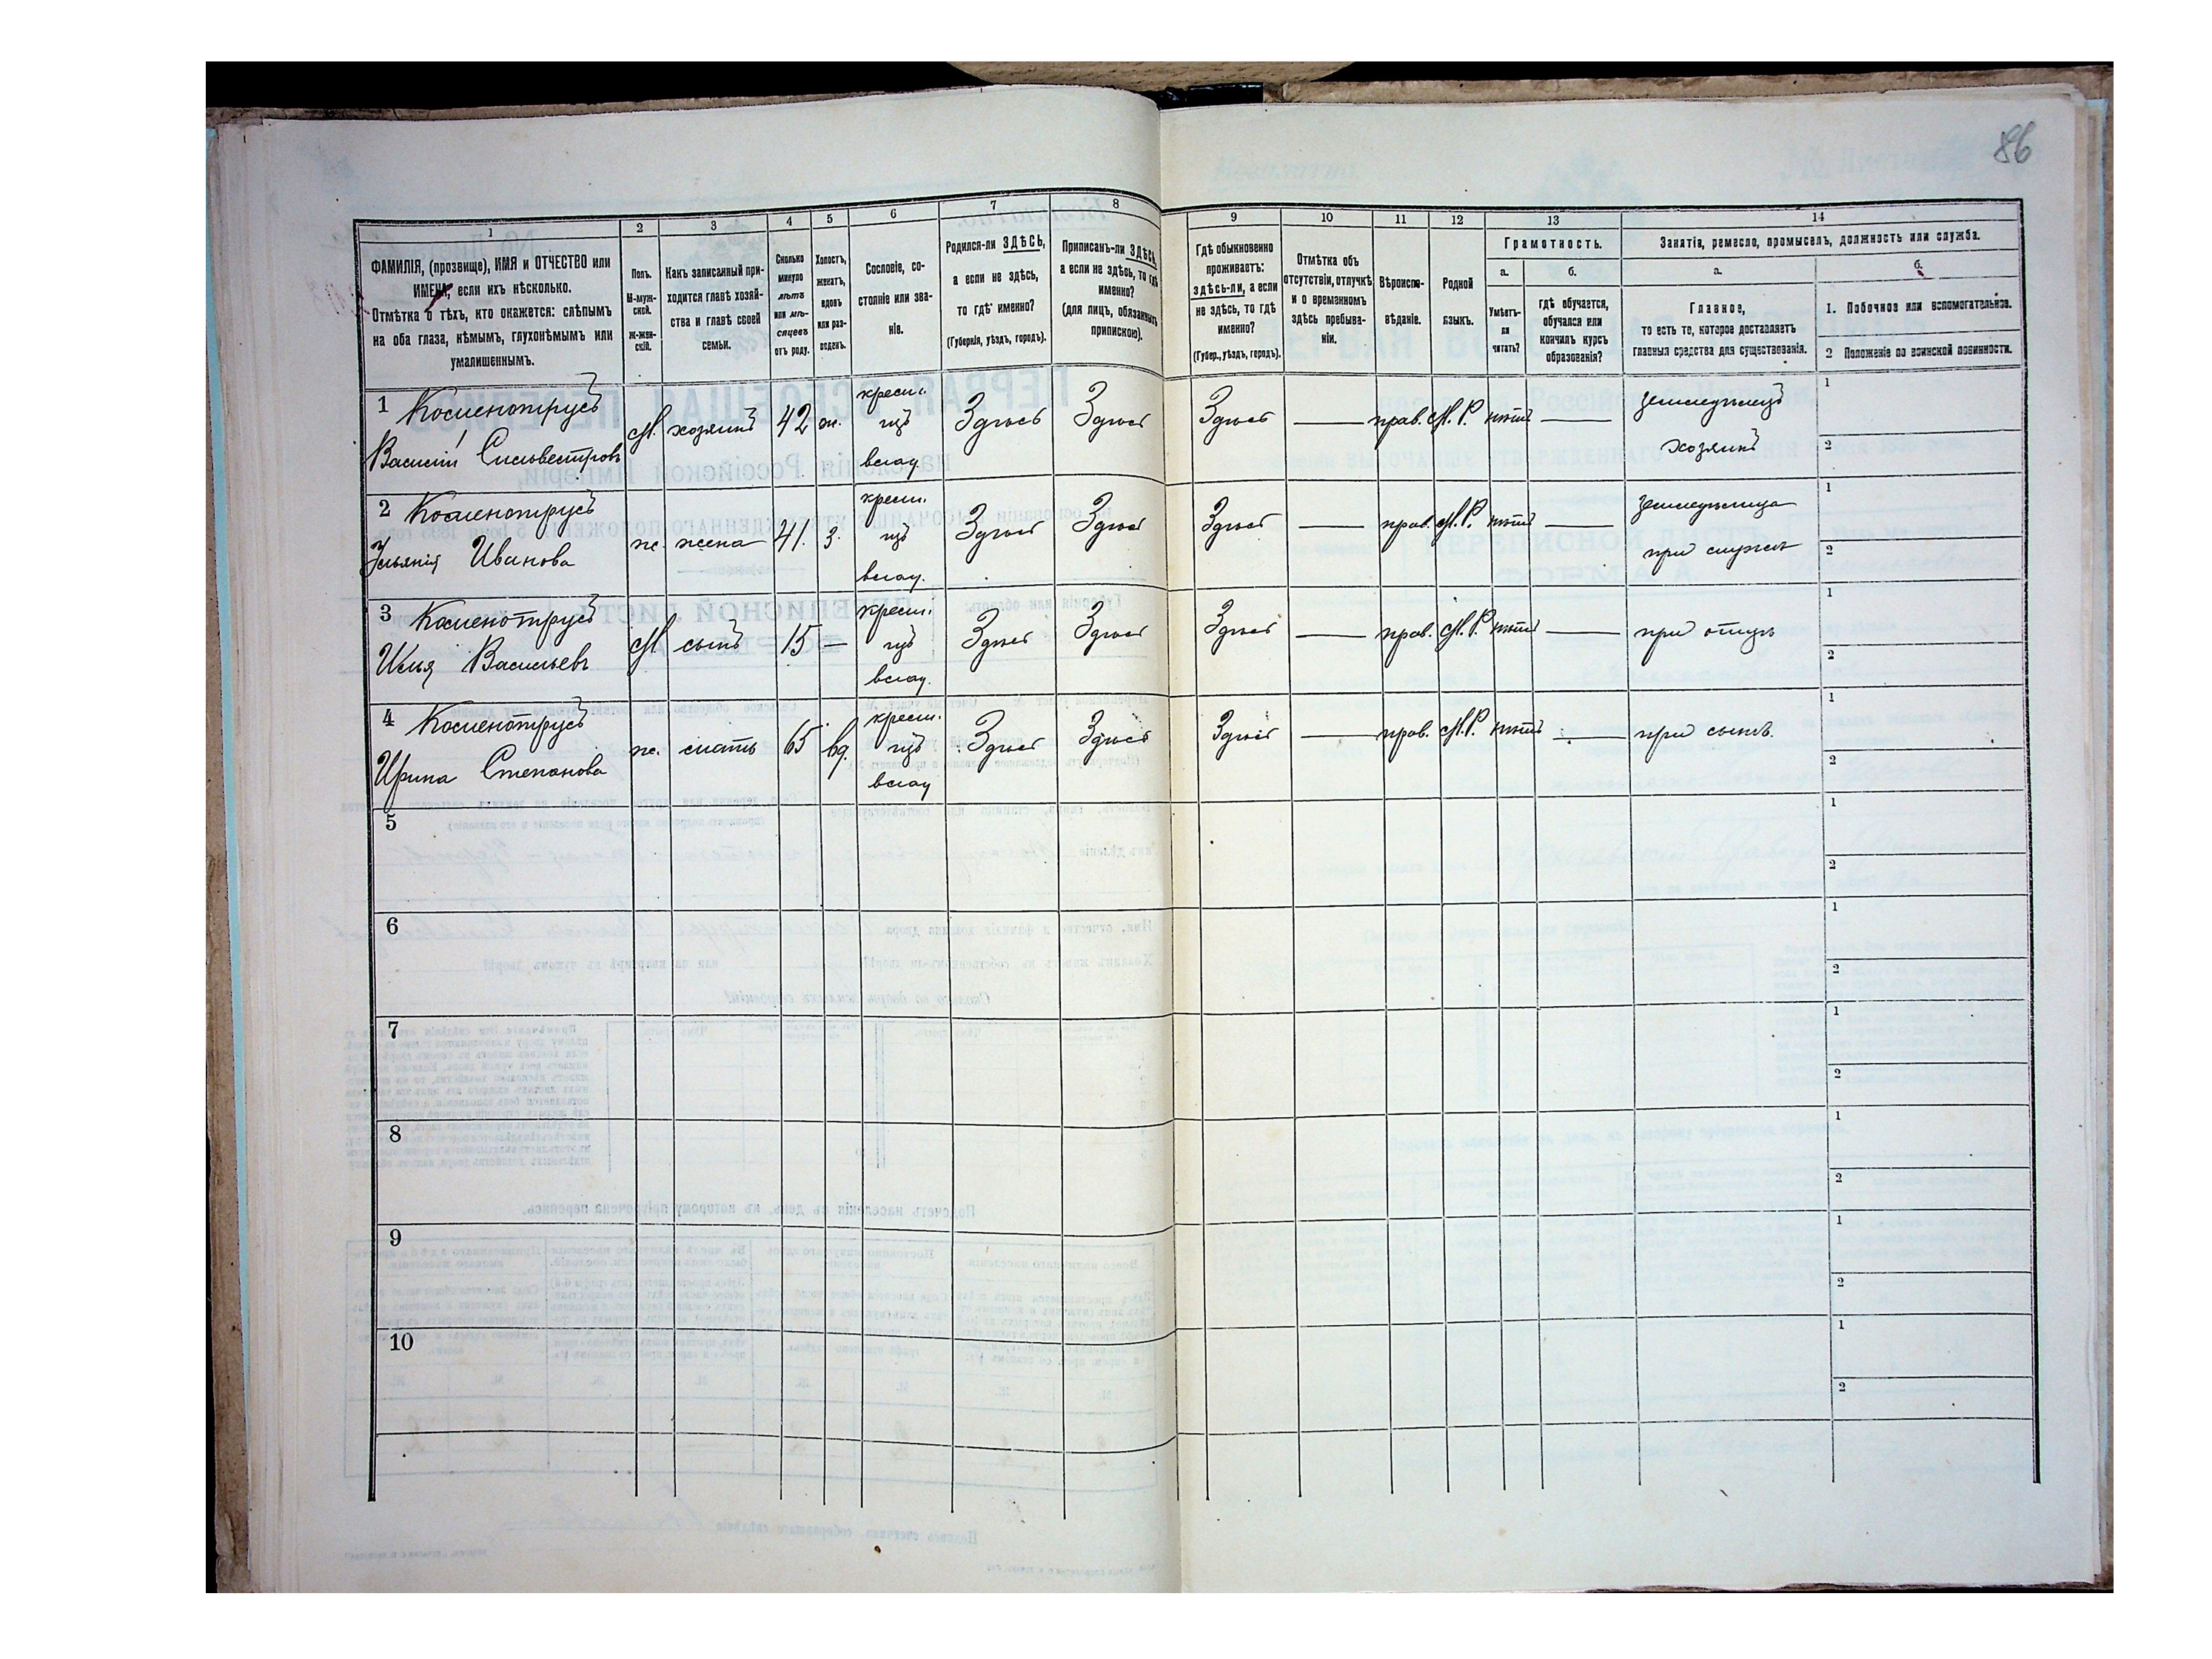 86
1
2
3
4
5
6
7
8
9
10
11
12
13
14
ФАМИЛІЯ, (прозвище), ИМЯ и ОТЧЕСТВО или
ИМЕНА, если ихъ нѣсколько.
Отмѣтка о тѣхъ, кто окажется: слѣпымъ
на оба глаза, нѣмымъ, глухонѣмымъ или
умалишеннымъ.
Полъ.
М-муж-
ской.
Ж-жен-
скій.
Какъ записанный при-
ходится главѣ хозяй-
ства и главѣ своей
семьи.
Сколько
минуло
лѣтъ
или мѣ-
сяцевъ
отъ роду.
Холостъ,
женатъ,
вдовъ
или раз-
веденъ.
Сословіе, со-
стояніе или зва-
ніе.
Родился-ли ЗДѢСЬ,
а если не здѣсь,
то гдѣ именно?
(Губернія, уѣздъ, городъ).
Приписанъ-ли ЗДѢСЬ,
а если не здѣсь, то гдѣ
именно?
(для лицъ, обязанныхъ
припискою).
Гдѣ обыкновенно
проживаетъ:
здѣсь-ли, а если
не здѣсь, то гдѣ
именно?
(Губер., уѣздъ, городъ).
Отмѣтка объ
отсутствіи, отлучкѣ
и о временномъ
здѣсь пребыва-
ніи.
Вѣроиспо-
вѣданіе.
Родной
языкъ.
Грамотность.
а.
б.
Умѣетъ-
ли
читать?
гдѣ обучается,
обучался или
кончилъ курсъ
образованія?
Занятіе, ремесло, промыселъ, должность или служба.
а.
б.
Главное,
то есть то, которое доставляетъ
главныя средства для существованія.
1. Побочное или вспомогательное.
2 Положеніе по воинской повинности.
1
Василій Сильвестровъ
М. хозяинъ 42 ж. крест. изъ влад. Здѣсь Здѣсь Здѣсь — прав. М.Р. нѣтъ — земледѣлецъ хозяинъ 1 2
2
Иванова
ж. жена 41. З. крест. изъ влад. Здѣсь Здѣсь Здѣсь — прав. М.Р. нѣтъ — земледѣлица при мужѣ 1 2
3
Илья Васильевъ
М сынъ 15 — крест. изъ влад. Здѣсь Здѣсь Здѣсь — прав. М.Р. нѣтъ — при отцѣ 1 2
4
Ирина Степанова
ж. мать 65 вд. крест. изъ влад Здѣсь Здѣсь Здѣсь — прав. М.Р. нѣтъ — при сынѣ. 1 2
5 1 2
6 1 2
7 1 2
8 1 2
9 1 2
10 1 2